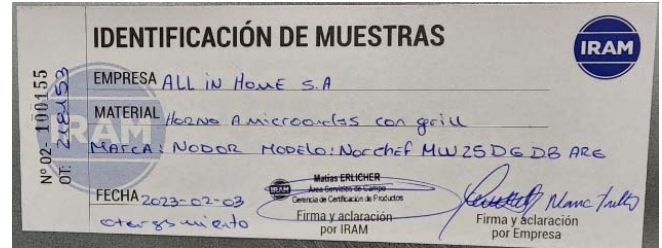 IDENTIFICACIÓN DE MUESTRAS
IRAM
Nº 02- 100155
OT: 218153
EMPRESA ALL iN HOME S.A
MATERIAL HORNO A microondas con grill
MARCA: NODOR MODELO: Norchef MW25DG DB ARG
FECHA 2023-02-03
otorgamiento
IRAM
Matías ERLICHER
Área Servicios de Campo
Gerencia de Certificación de Productos
Firma y aclaración
por IRAM
Firma y aclaración
por Empresa